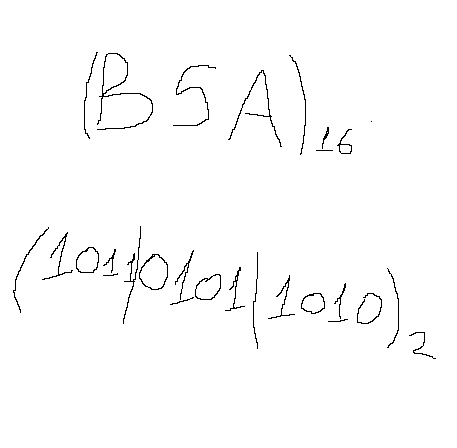 (B5A)16
(1011|0101|1010)2